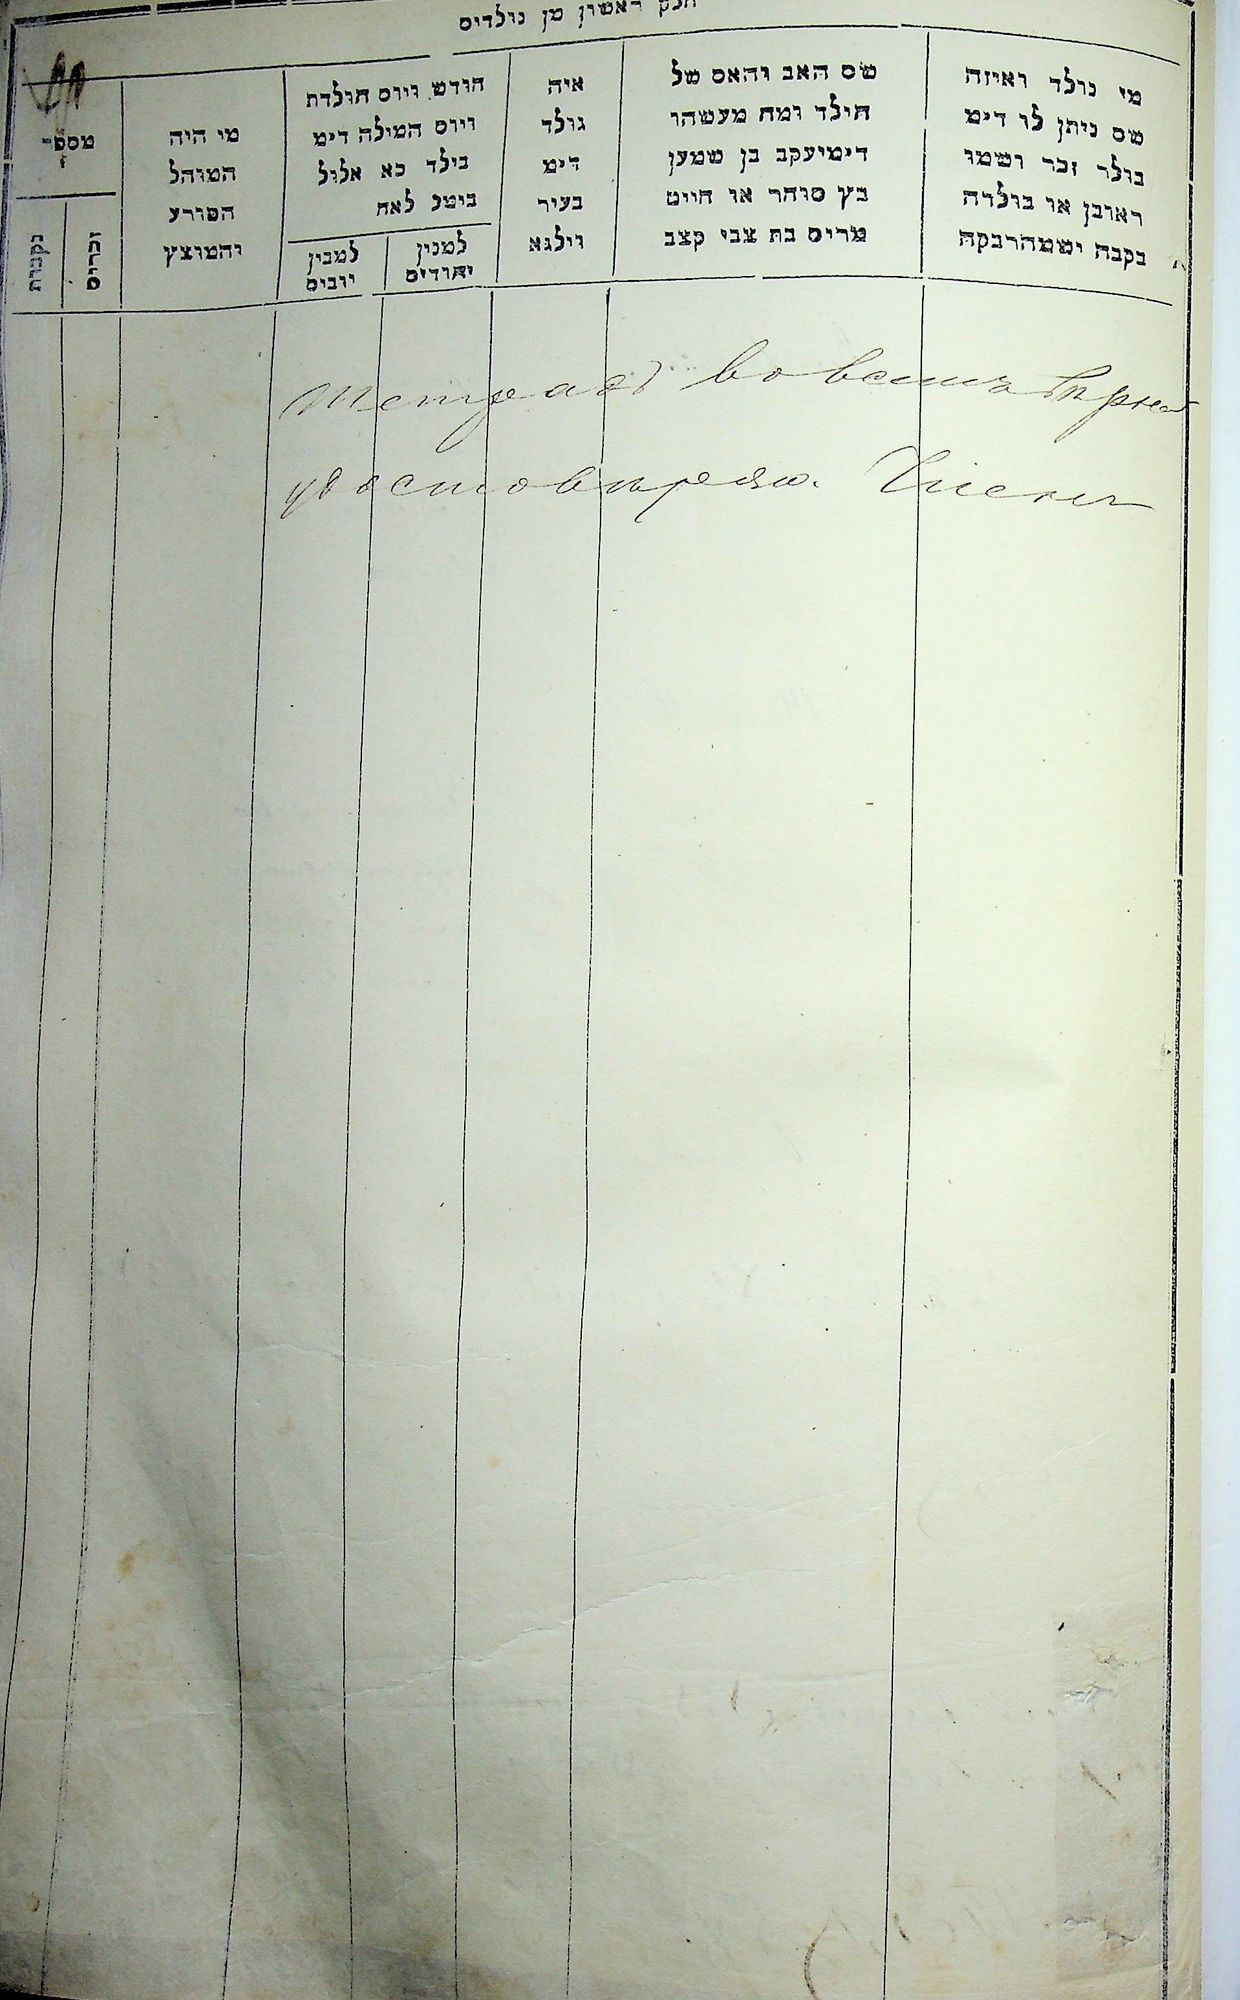 חלק ראשון מן נולדים
מי נולד ואיזה
שם ניתן לו דימ
נולד זכר ושמו
ראובן או נולדה
נקבה ושמה רבקה
שם האב והאם של
הילד ומה מעשהו
דימ יעקב בן שמען
כץ סוחר או חייט
מרים בת צבי קצב
איה
נולד
דימ
בעיר
ווילנא
חודש ויום הולדת
ויום המילה דימ
נולד כא אלול
נימל לאח
למנין
יהודים
למנין
יונים
מי היה
המוהל
הפורע
והמוצץ
מספר
זכרים
נקבות
тетрадь во всемъ вѣрна
удостовѣряю. Членъ